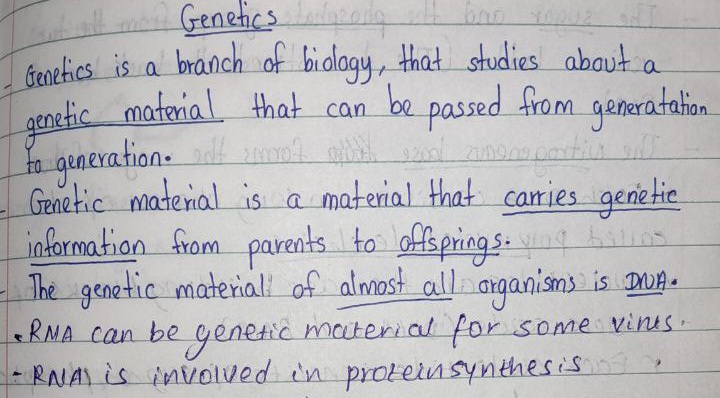 Genetics
- Genetics is a branch of biology, that studies about a
genetic material that can be passed from generatation
to generation.
- Genetic material is a material that carries genetic
information from parents to offsprings.
- The genetic material of almost all organisms is DNA.
• RNA can be genetic material for some virus.
- RNA is involved in protein synthesis